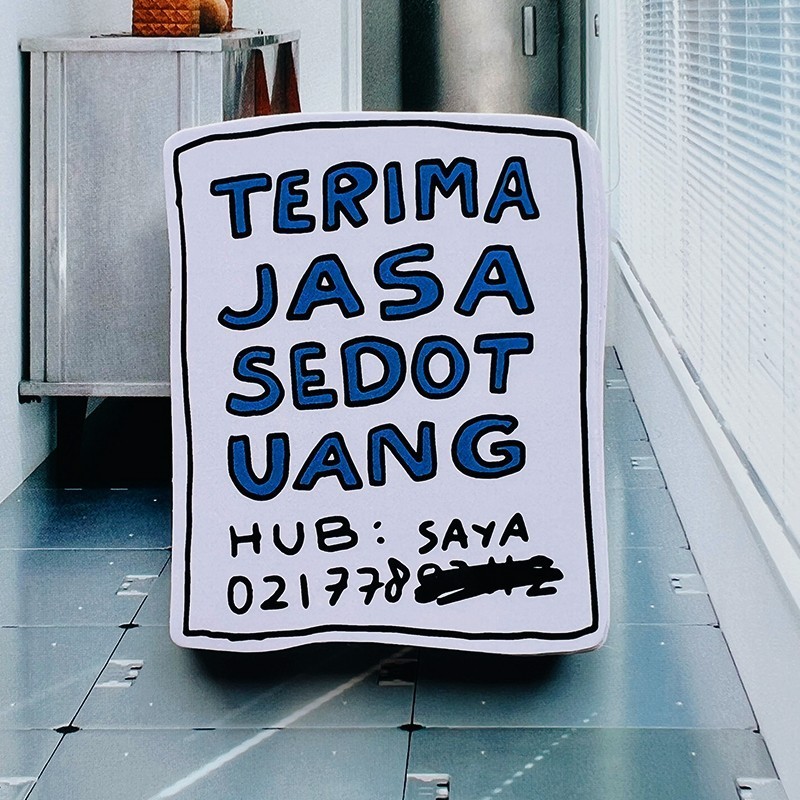 TERIMA
JASA
SEDOT
UANG
HUB: SAYA
021778